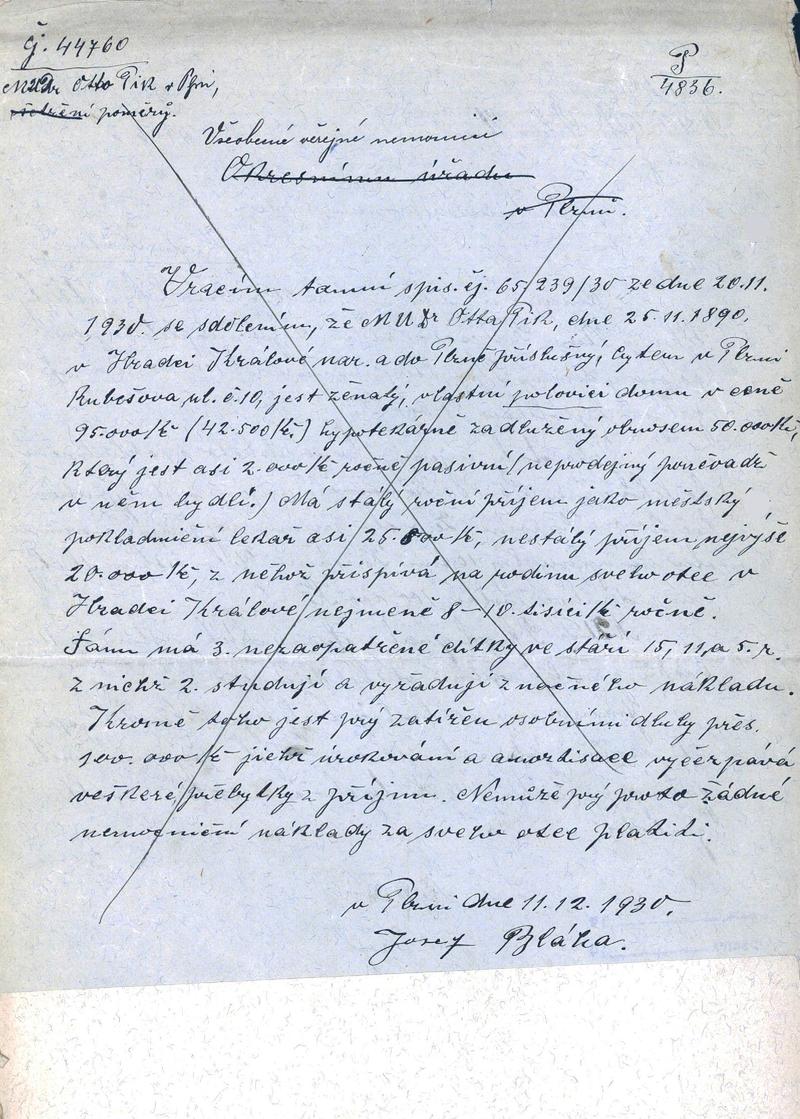 Čj. 44760
P
4836.
MUDr Otto Pik v Plzni,
zjištění poměrů.
Všeobecné veřejné nemocnici
Okresnímu úřadu
v Plzni.
Vracím tamní spis. čj. 65/239/30 ze dne 20.11.
1930. se sdělením, že MUDr Otta Pik, dne 25.11.1890.
v Hradci Králové nar. a do Plzně příslušný, bytem v Plzni
Rubešova ul. č.10, jest ženatý, vlastní polovici domu v ceně
95.000 Kč (42.500 Kč.) hypotekárně zadlužený obnosem 50.000 Kč,
který jest asi 2.000 Kč ročně pasivní (neprodejný poněvadž
v něm bydlí.) Má stálý roční příjem jako městský
pokladniční lekař asi 25.500 Kč, nestálý příjem nejvýše
20.000 Kč, z něhož přispívá na rodinu sveho otce v
Hradci Králové nejmeně 8-10. tisíci Kč ročně.
Jánu má 3. nezaopatřené dítky ve stáří 15, 11, a 5. r.
z nichž 2. studují a vyžadují značného nákladu.
Kromě toho jest prý zatížen osobními dluhy přes.
100.000 Kč jichž úrokování a amortisace vyčerpává
veškeré přebytky z příjmu. Nemůže prý proto žádné
nemocniční náklady za sveho otce platiti.
v Plzni dne 11.12.1930.
Josef Bláha.